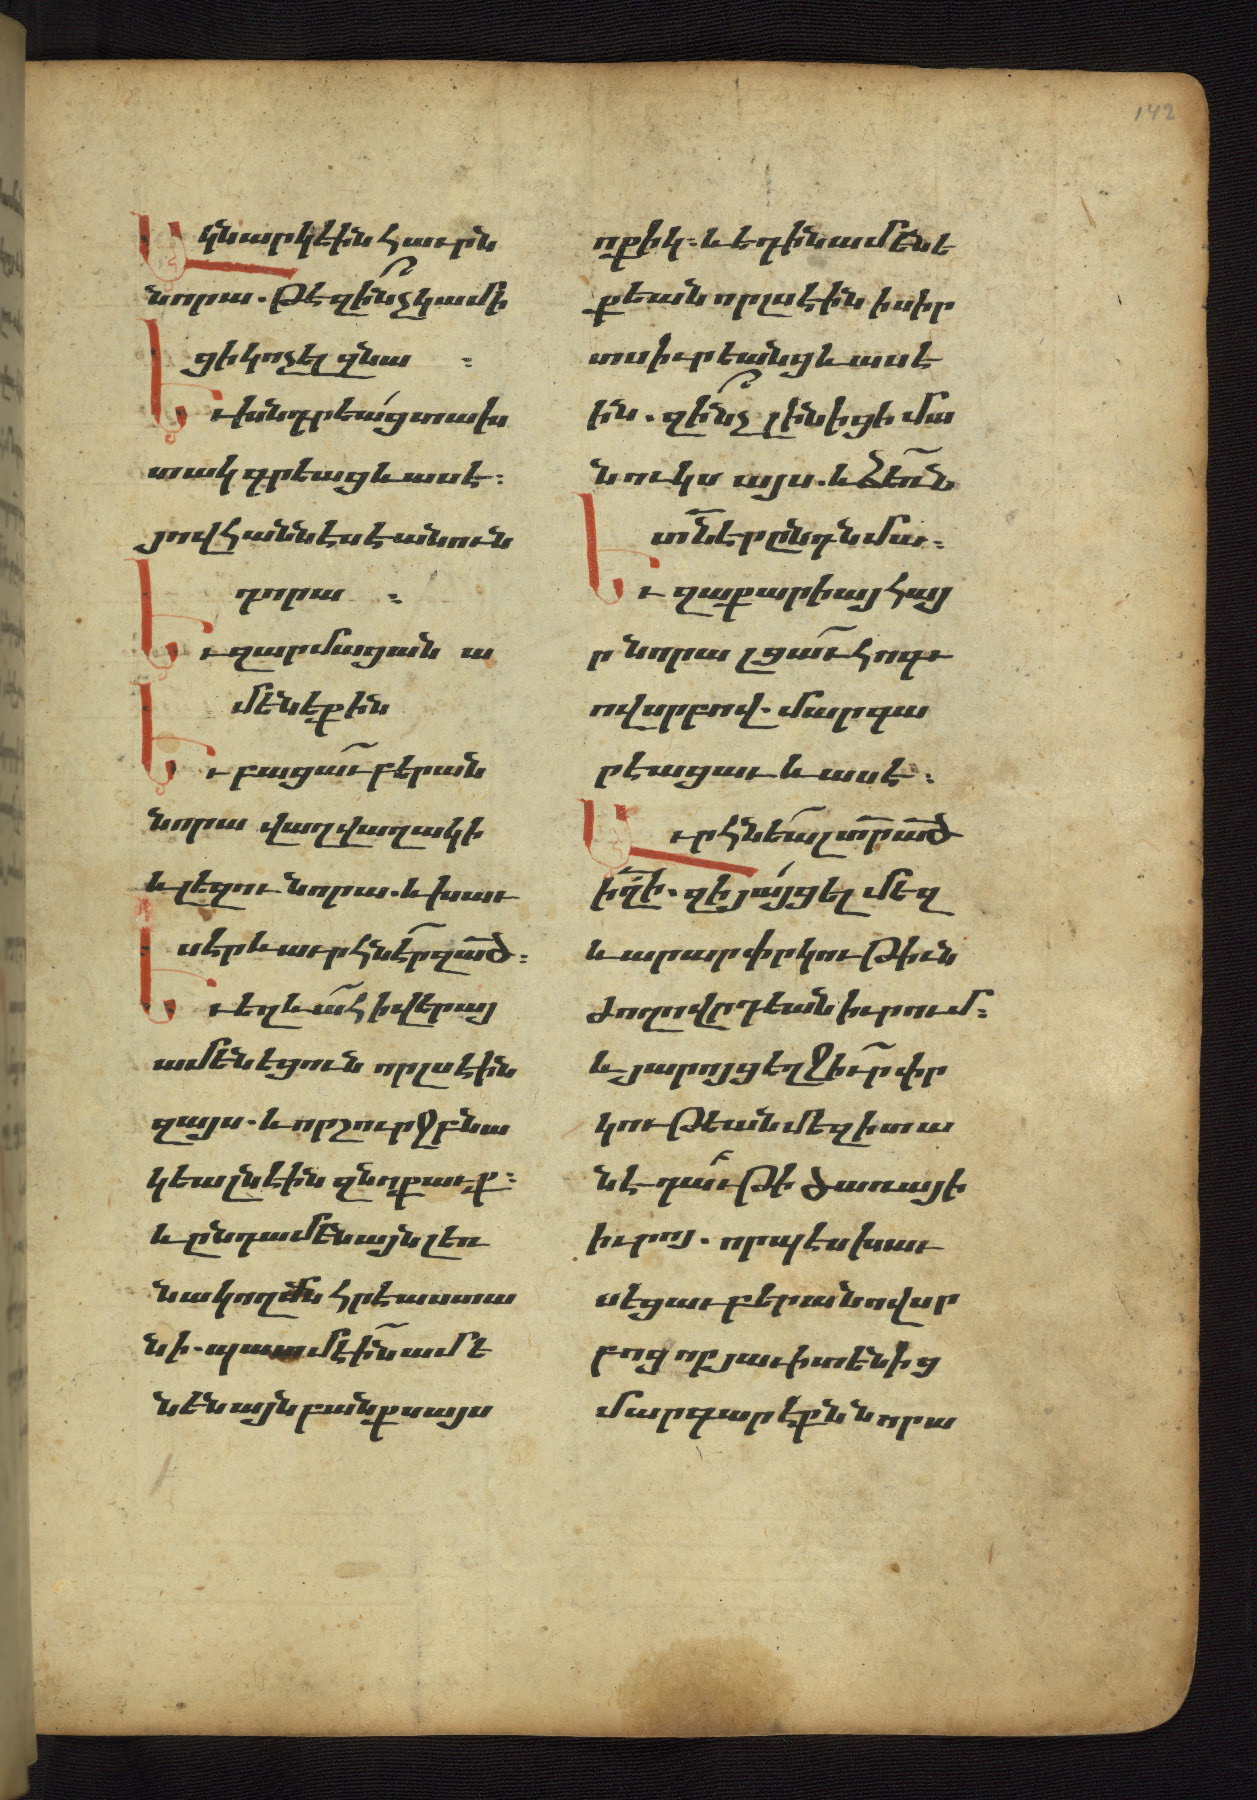 142
Ակնարկէին հաւրն
նորա. թէ զի՞նչ կամի
ցի կոչել զնա :
Եւ խնդրեա՛ց տախ
տակ գրեաց և ասէ :
յովհաննէս է անուն
դորա :
Եւ զարմացան ա
մէնեքին
Եւ բացաւ բերան
նորա վաղվաղակի
և լեզու նորա. և խաւ
սէր և աւրհնէր զած :
Եւ եղև ահ ի վերայ
ամենեցուն որ լսէին
զայս. և որ շուրջ բնա
կեալ էին զնոքաւք :
և ընդ ամենայն լեռ
նակողմն հրէաստա
նի. պատմէին ամե
նէն այն բանքս այս
ոքիկ : և եդին ամենե
քեան որ լսէին ի սիր
տս իւրեանց և ասէ
ին. զի՞նչ լինիցի մա
նուկս այս. և ձեռն
տն էր ընդ նմա :
Եւ զաքարիայ հայ
ր նորա լցաւ հոգւ
ովսրբով. մարգա
րէացաւ և ասէ :
Աւրհնեալ տր ած
իղի. զի յայց ել մեզ
և արար փրկութիւն
ժողովրդեան իւրում :
և յարոյց եղջիւր փր
կութեան մեզ ի տա
նէ դաւթի ծառայի
իւրոյ. որպէս խաւ
սեցաւ բերանովսր
բոց որ յաւիտենից
մարգարէքն նորա